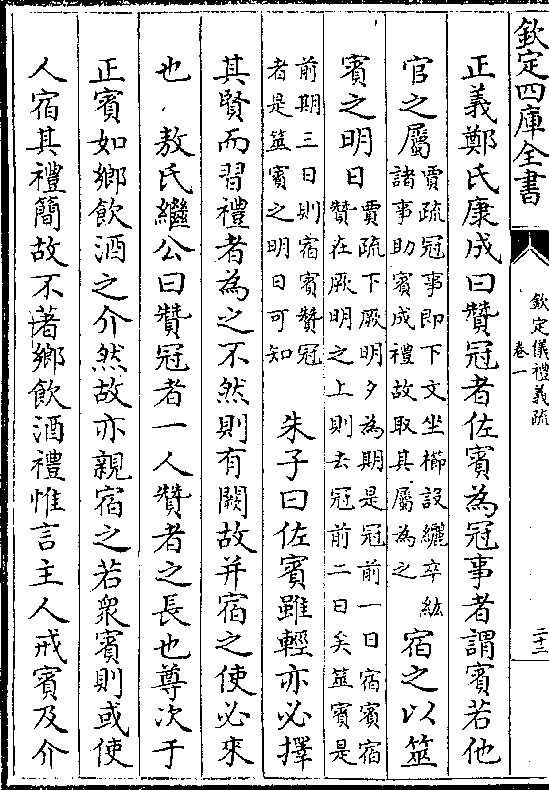 欽定四庫全書
欽定儀禮義疏
卷一
二十三
正義鄭氏康成曰贊冠者佐賓為冠事者謂賓若他
官之屬
賈疏冠事即下文坐櫛設纚卒紘
諸事助賓成禮故取其屬為之
宿之以筮
賓之明日
賈疏下厥明夕為期是冠前一日宿賓宿
贊在厥明之上則去冠前二日矣筮賓是
前期三日則宿賓贊冠
者是筮賓之明日可知
朱子曰佐賓雖輕亦必擇
其賢而習禮者為之不然則有闕故并宿之使必來
也 敖氏繼公曰贊冠者一人贊者之長也尊次于
正賓如鄉飲酒之介然故亦親宿之若衆賓則或使
人宿其禮簡故不著鄉飲酒禮惟言主人戒賓及介